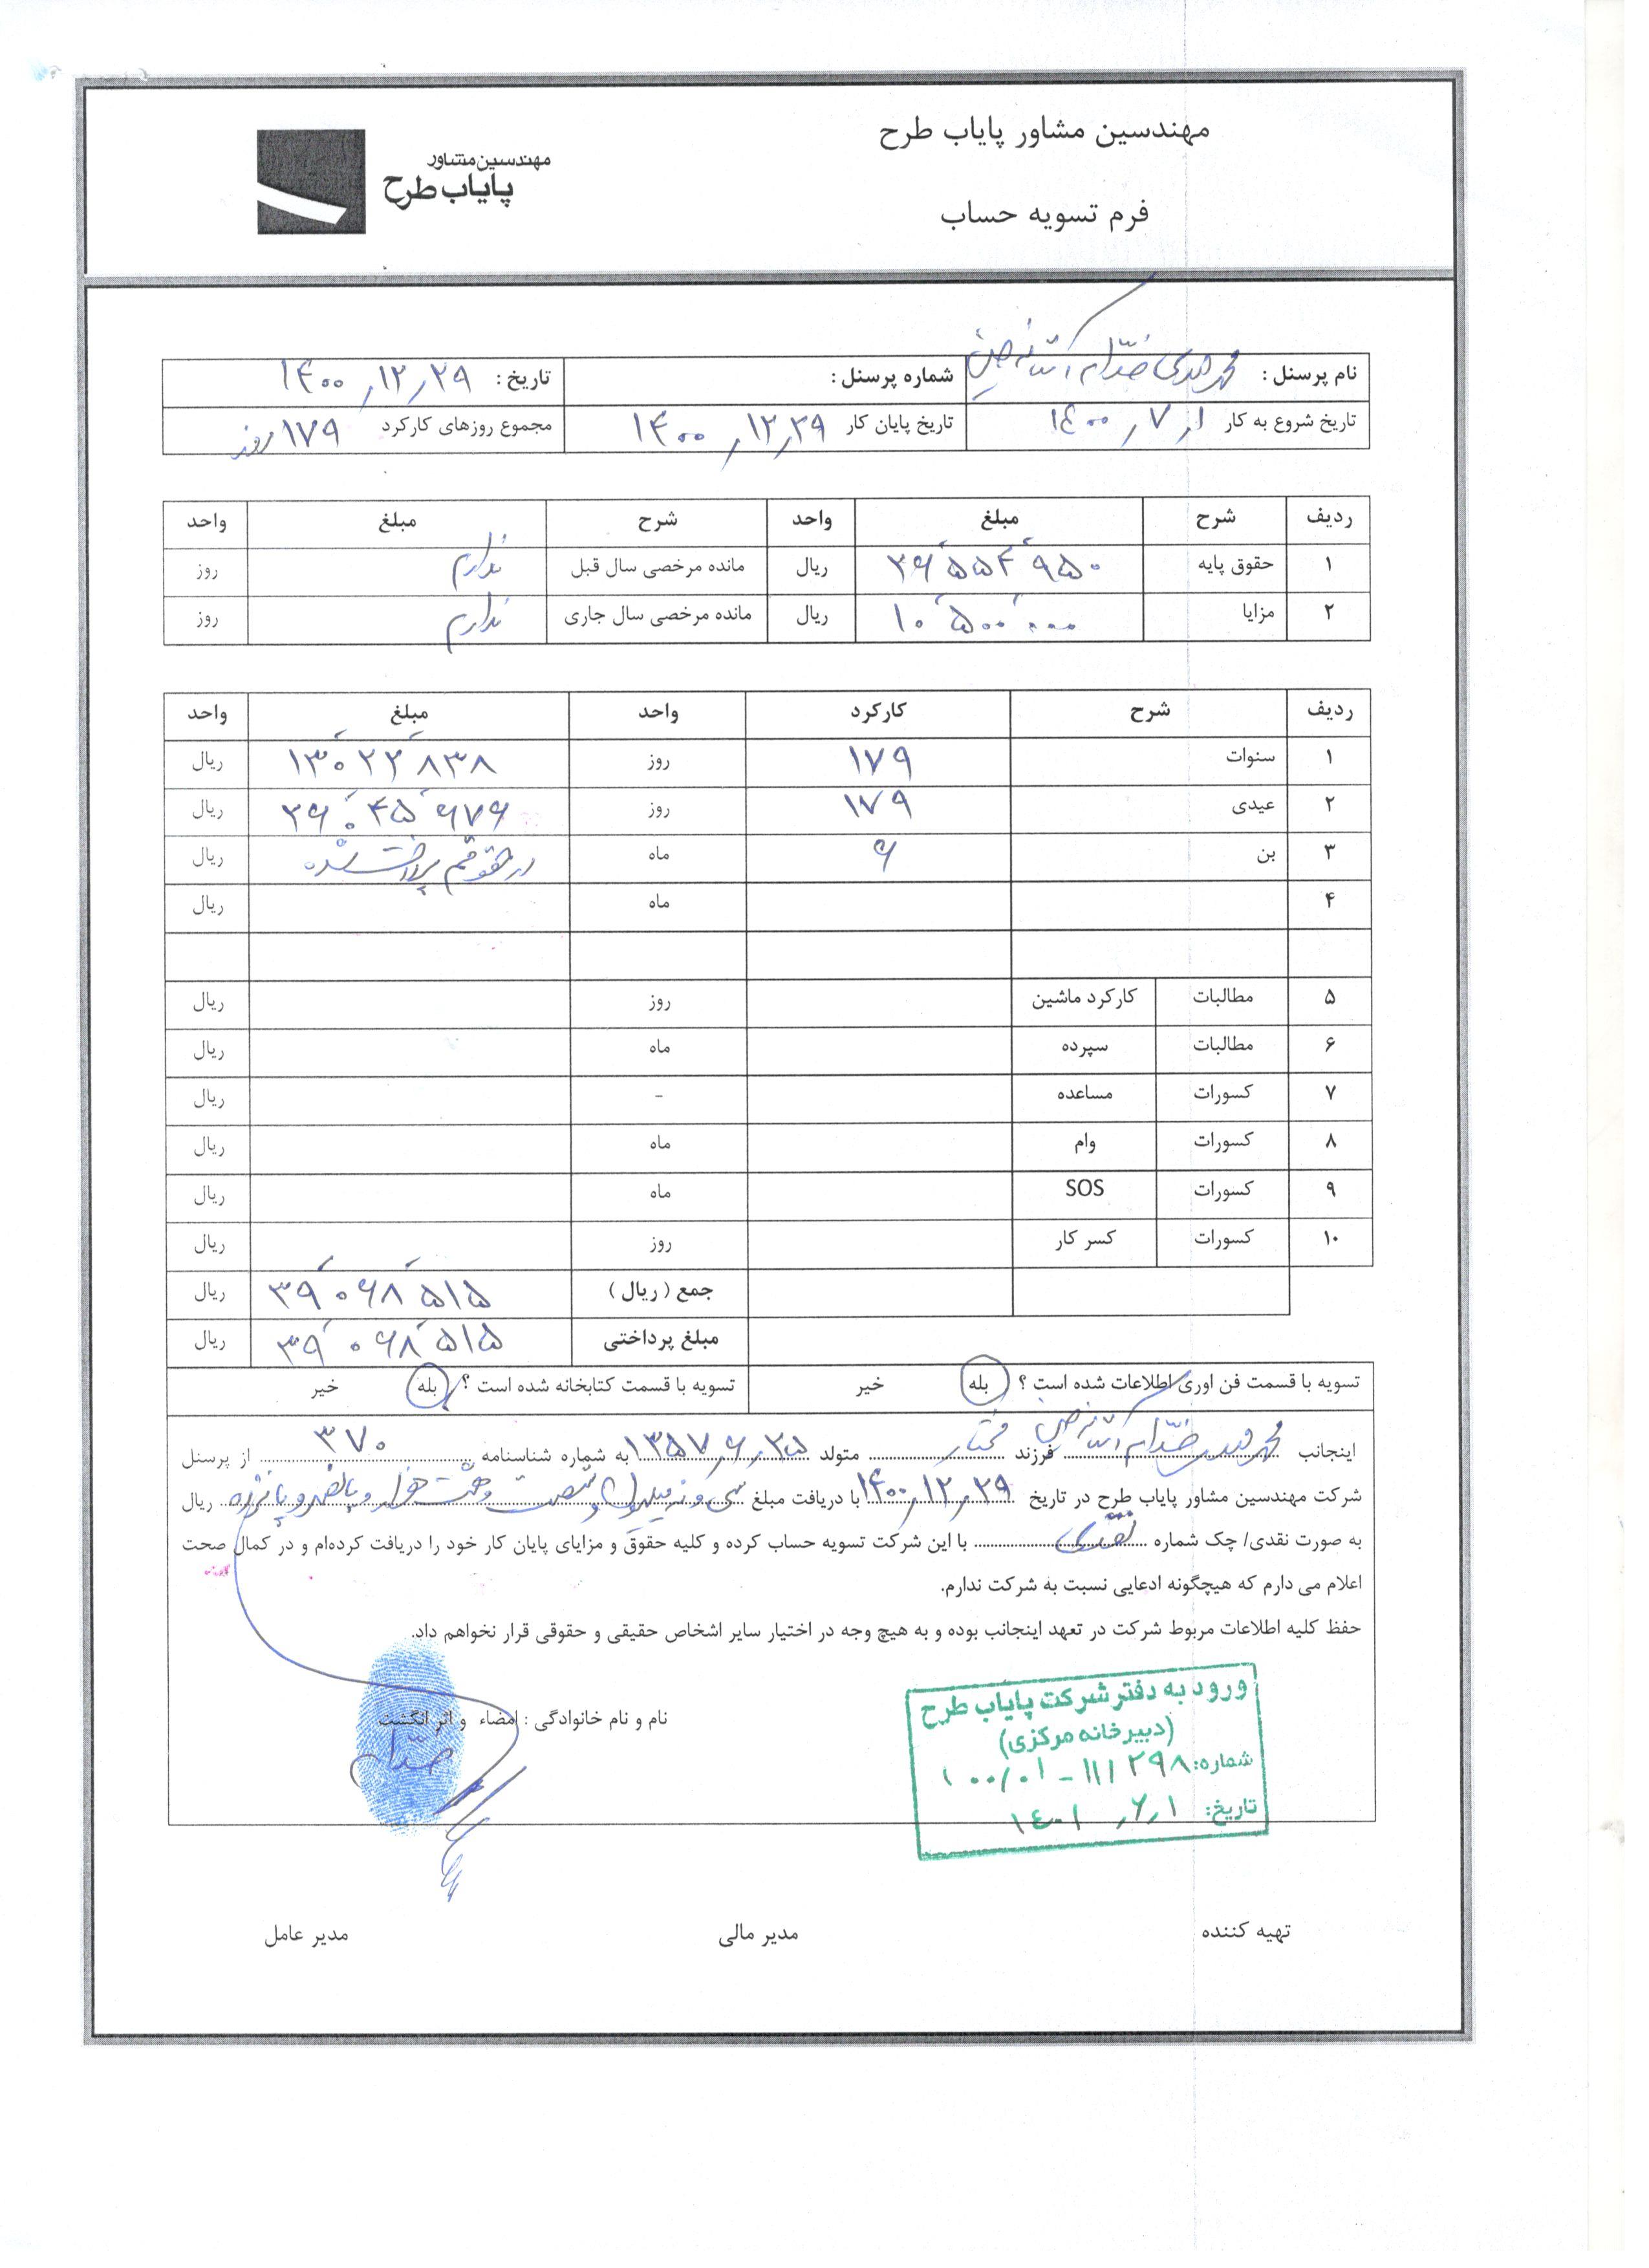 مهندسین مشاور پایاب طرح
مهندسین مشاور
پایاب طرح
فرم تسویه حساب
نام پرسنل : محمد مهدی خدام آستانه حسین شماره پرسنل : تاریخ : ۱۴۰۰,۱۲,۲۹
تاریخ شروع به کار ۱۴۰۰,۷,۱ تاریخ پایان کار ۱۴۰۰,۱۲,۲۹ مجموع روزهای کارکرد ۱۷۹ روز
ردیف شرح مبلغ واحد شرح مبلغ واحد
۱ حقوق پایه ۲۶٬۵۵۴٬۹۵۰ ریال مانده مرخصی سال قبل ندارم روز
۲ مزایا ۱۰٬۵۰۰٬۰۰۰ ریال مانده مرخصی سال جاری ندارم روز
ردیف شرح کارکرد واحد مبلغ واحد
۱ سنوات ۱۷۹ روز ۱۳٬۰۲۲٬۸۳۸ ریال
۲ عیدی ۱۷۹ روز ۲۶٬۰۴۵٬۶۷۶ ریال
۳ بن ۶ ماه در حقوقم پرداخت شده ریال
۴ ماه ریال
۵ مطالبات کارکرد ماشین روز ریال
۶ مطالبات سپرده ماه ریال
۷ کسورات مساعده - ریال
۸ کسورات وام ماه ریال
۹ کسورات SOS ماه ریال
۱۰ کسورات کسر کار روز ریال
جمع ( ریال ) ۳۹٬۰۶۸٬۵۱۵ ریال
مبلغ پرداختی ۳۹٬۰۶۸٬۵۱۵ ریال
تسویه با قسمت فن اوری اطلاعات شده است ؟ بله خیر تسویه با قسمت کتابخانه شده است ؟ بله خیر
اینجانب محمد مهدی خدام آستانه حسین فرزند مختار متولد ۱۳۵۷,۶,۲۵ به شماره شناسنامه ۳۷۰ از پرسنل
شرکت مهندسین مشاور پایاب طرح در تاریخ ۱۴۰۰,۱۲,۲۹ با دریافت مبلغ سی و نه میلیون و شصت و هشت هزار و پانصد و پانزده ریال
به صورت نقدی/ چک شماره نقدی با این شرکت تسویه حساب کرده و کلیه حقوق و مزایای پایان کار خود را دریافت کرده‌ام و در کمال صحت
اعلام می دارم که هیچگونه ادعایی نسبت به شرکت ندارم.
حفظ کلیه اطلاعات مربوط شرکت در تعهد اینجانب بوده و به هیچ وجه در اختیار سایر اشخاص حقیقی و حقوقی قرار نخواهم داد.
نام و نام خانوادگی : امضاء و اثر انگشت
خدام
ورود به دفتر شرکت پایاب طرح
(دبیرخانه مرکزی)
شماره: ۱۰۰/۰۱ - ۱۱۱۲۹۸
تاریخ: ۱۴۰۱,۶,۱
تهیه کننده مدیر مالی مدیر عامل